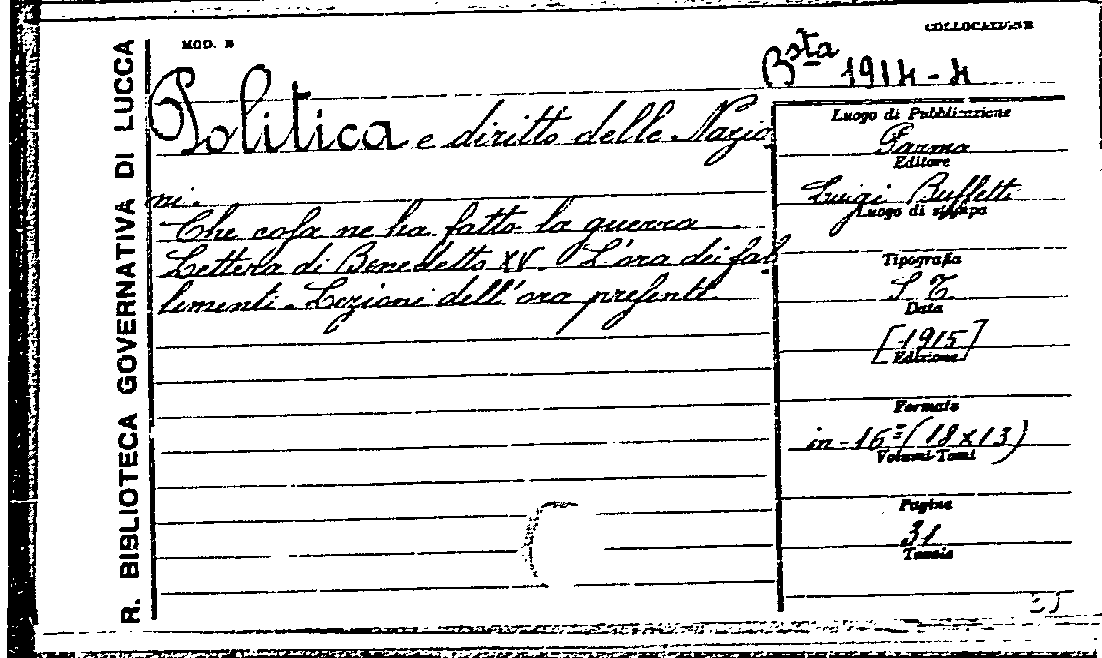 R. BIBLIOTECA GOVERNATIVA DI LUCCA
MOD. B
COLLOCAZIONE
Bsta 1914-4
Politica e diritto delle Nazio
ni.
Che cosa ne ha fatto la guerra
Lettera di Benedetto XV. L'ora dei fal
limenti. Lezioni dell'ora presente.
Luogo di Pubblicazione
Parma
Editore
Luigi Buffetti
Luogo di stampa
Tipografia
S. T.
Data
[1915]
Edizione
Formato
in-16º (18x13)
Volumi-Tomi
Pagine
31
Tavole